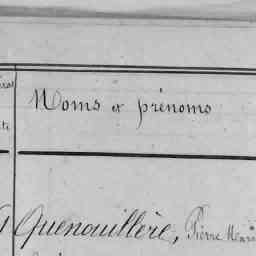 Noms et prénoms
Quenouillère, Pierre Marie